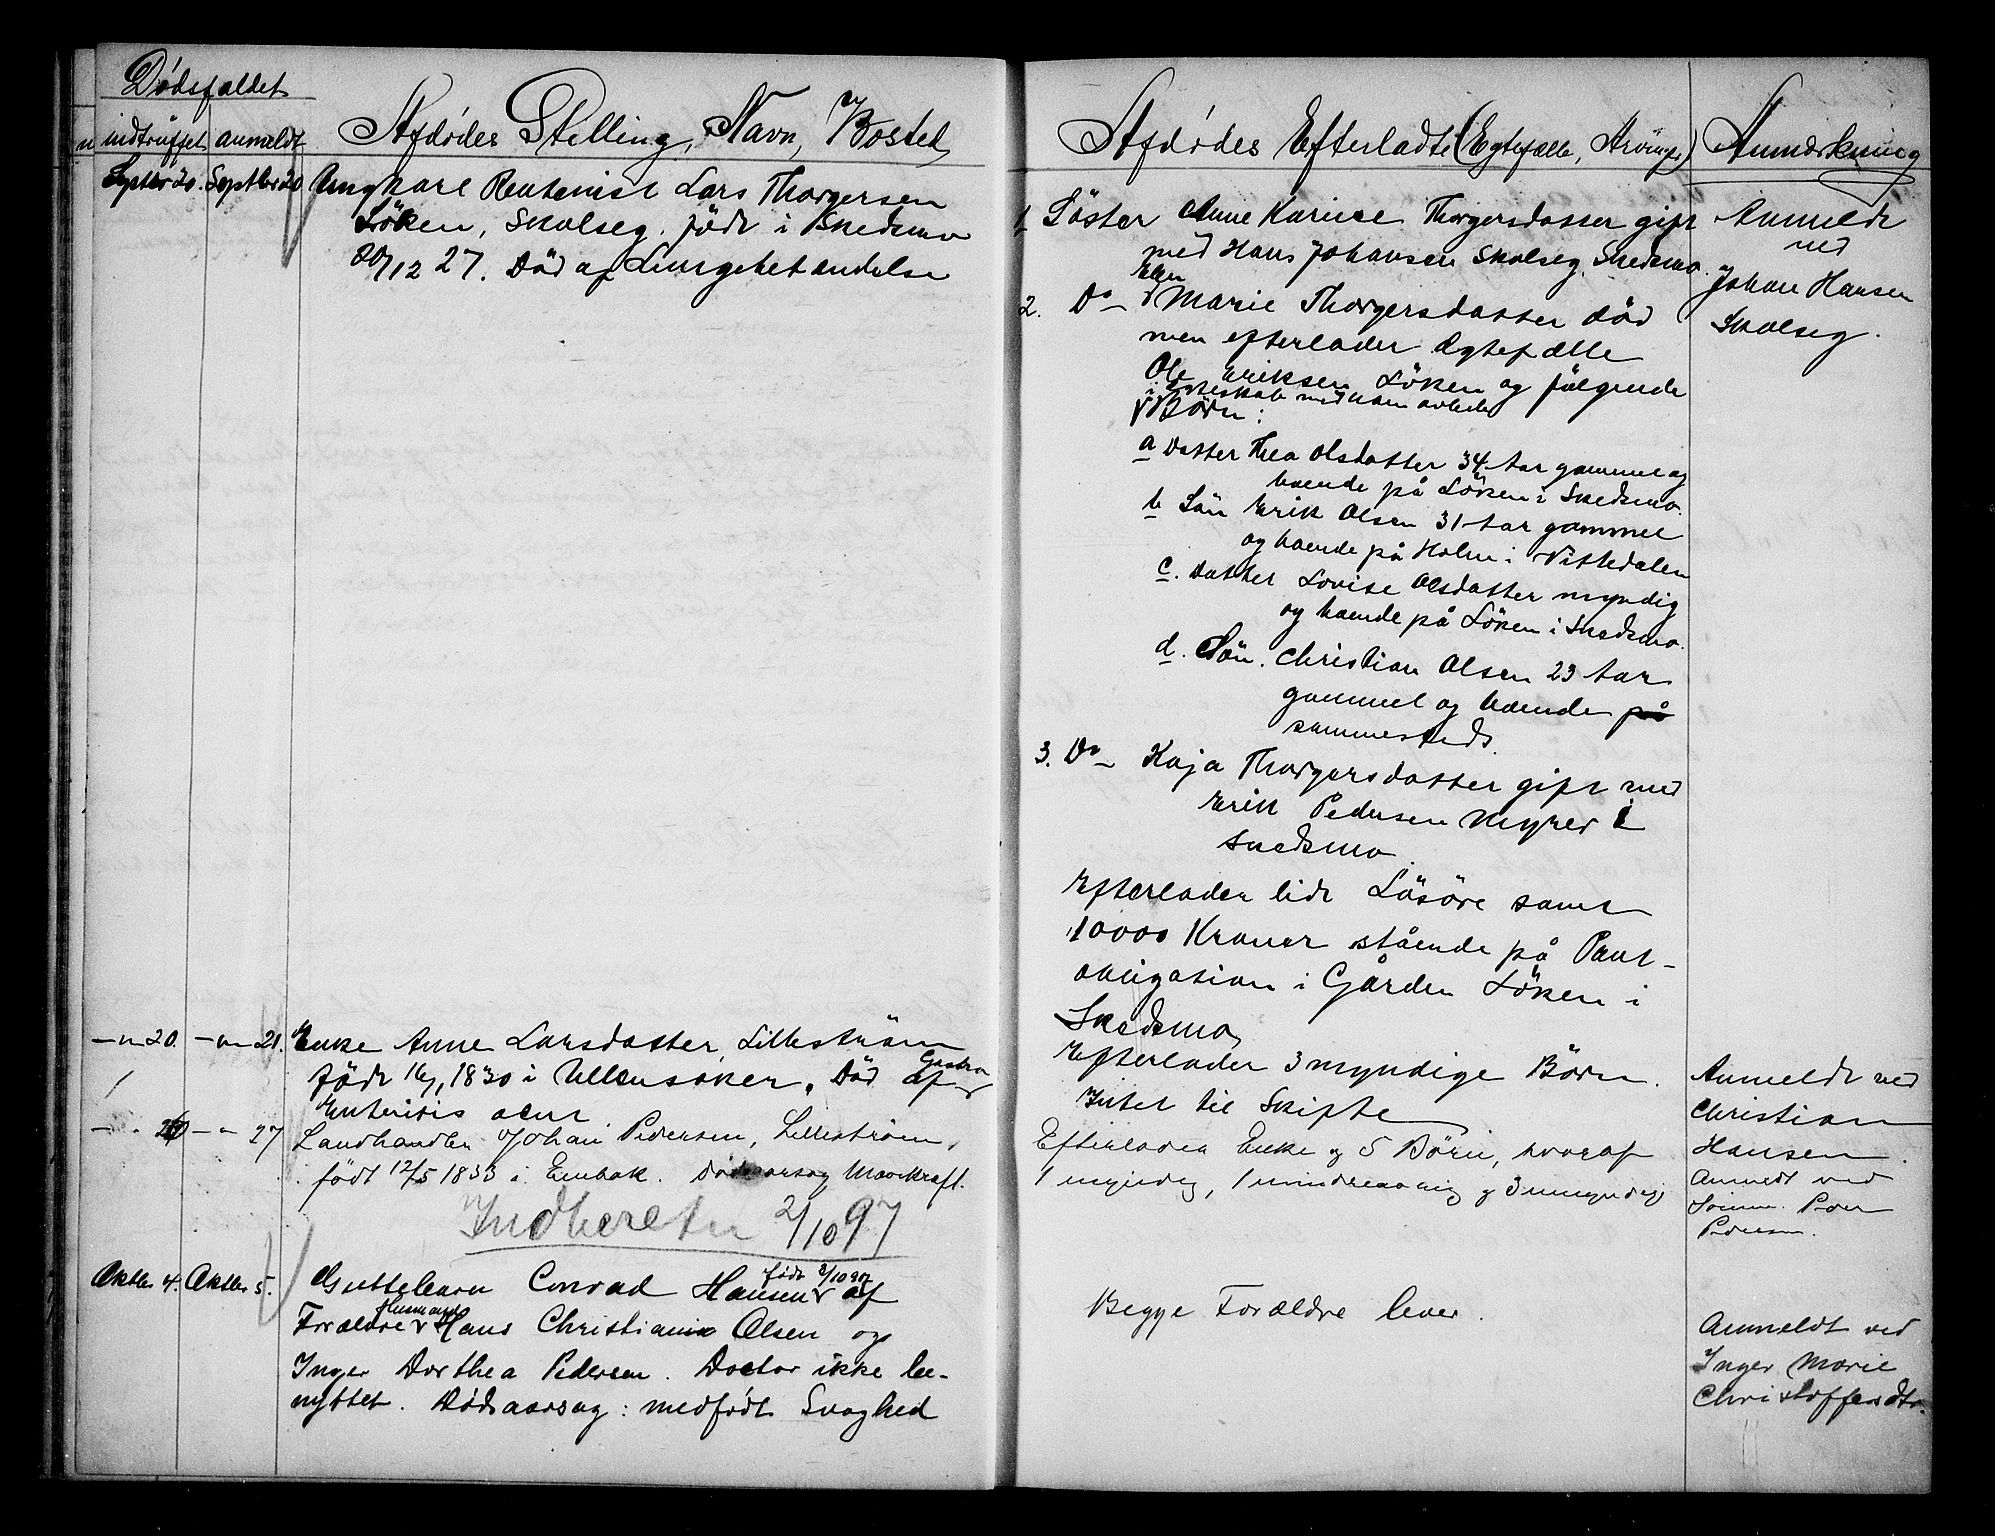 Dødsfaldet
indtruffet anmeldt Afdødes Stilling, Navn, Bosted
Septbr 20. Septbr 20 Ungkarl Rentenist Lars Thorgersen
Löken, Skolseg. född i Skedsmo
20/12 27. Död af Lungebetændelse
— " — 20. — " — 21. Enke Anne Larsdatter, Lilleström
född 16/1 1830 i Ullensaker. Död af Gastro
Enteritis acut
— " — 20 — " — 27 Landhandler Johan Pedersen, Lillestrøm,
født 12/5 1833 i Enebak. Dødsaarsag Mavekræft.
Indberetn 2/10 97
Oktbr 4. Oktbr 5. Guttebarn Conrad Hansen født 3/10 97 af
Forældre Husmand Hans Christian Olsen og
Inger Dorthea Pedersen. Doctor ikke be-
nyttet. Dødsaarsag: medfødt Svaghed
Afdødes Efterladte (Egtefælle, Arvinger) Anmærkning
1 Söster Anne Karine Thorgersdatter gift
med Hans Johansen Skolseg, Skedsmo.
2. Do — Ellen Marie Thorgersdatter död
men efterlader Ægtefælle
Ole Eriksen Löken og fölgende
i Egteskab med ham avlede
Börn:
a Datter Thea Olsdatter 34 Aar gammel og
boende på Löken i Skedsmo.
b Sön Erik Olsen 31 Aar gammel
og boende på Holm i Nittedalen
c. Datter Lovise Olsdatter myndig
og boende på Löken i Skedsmo.
d. Sön. Christian Olsen 23 Aar
gammel og boende på
sammesteds.
3. Do — Kaja Thorgersdatter gift med
Erik Pedersen Myrer i
Skedsmo
Efterlader lidt Lösöre samt
10000 Kroner stående på Pant-
obligation i Gården Löken i
Skedsmo
Efterlader 3 myndige Börn.
Intet til Skifte
Efterlader Enke og 5 Børn, hvoraf
1 myndig, 1 mindreaarig og 3 umyndige
Begge Forældre lever.
Anmeldt
ved
Johan Hansen
Skolseg.
Anmeldt ved
Christian
Hansen.
Anmeldt ved
Sönnen Peder
Pedersen.
Anmeldt ved
Inger Marie
Christoffersdtr.